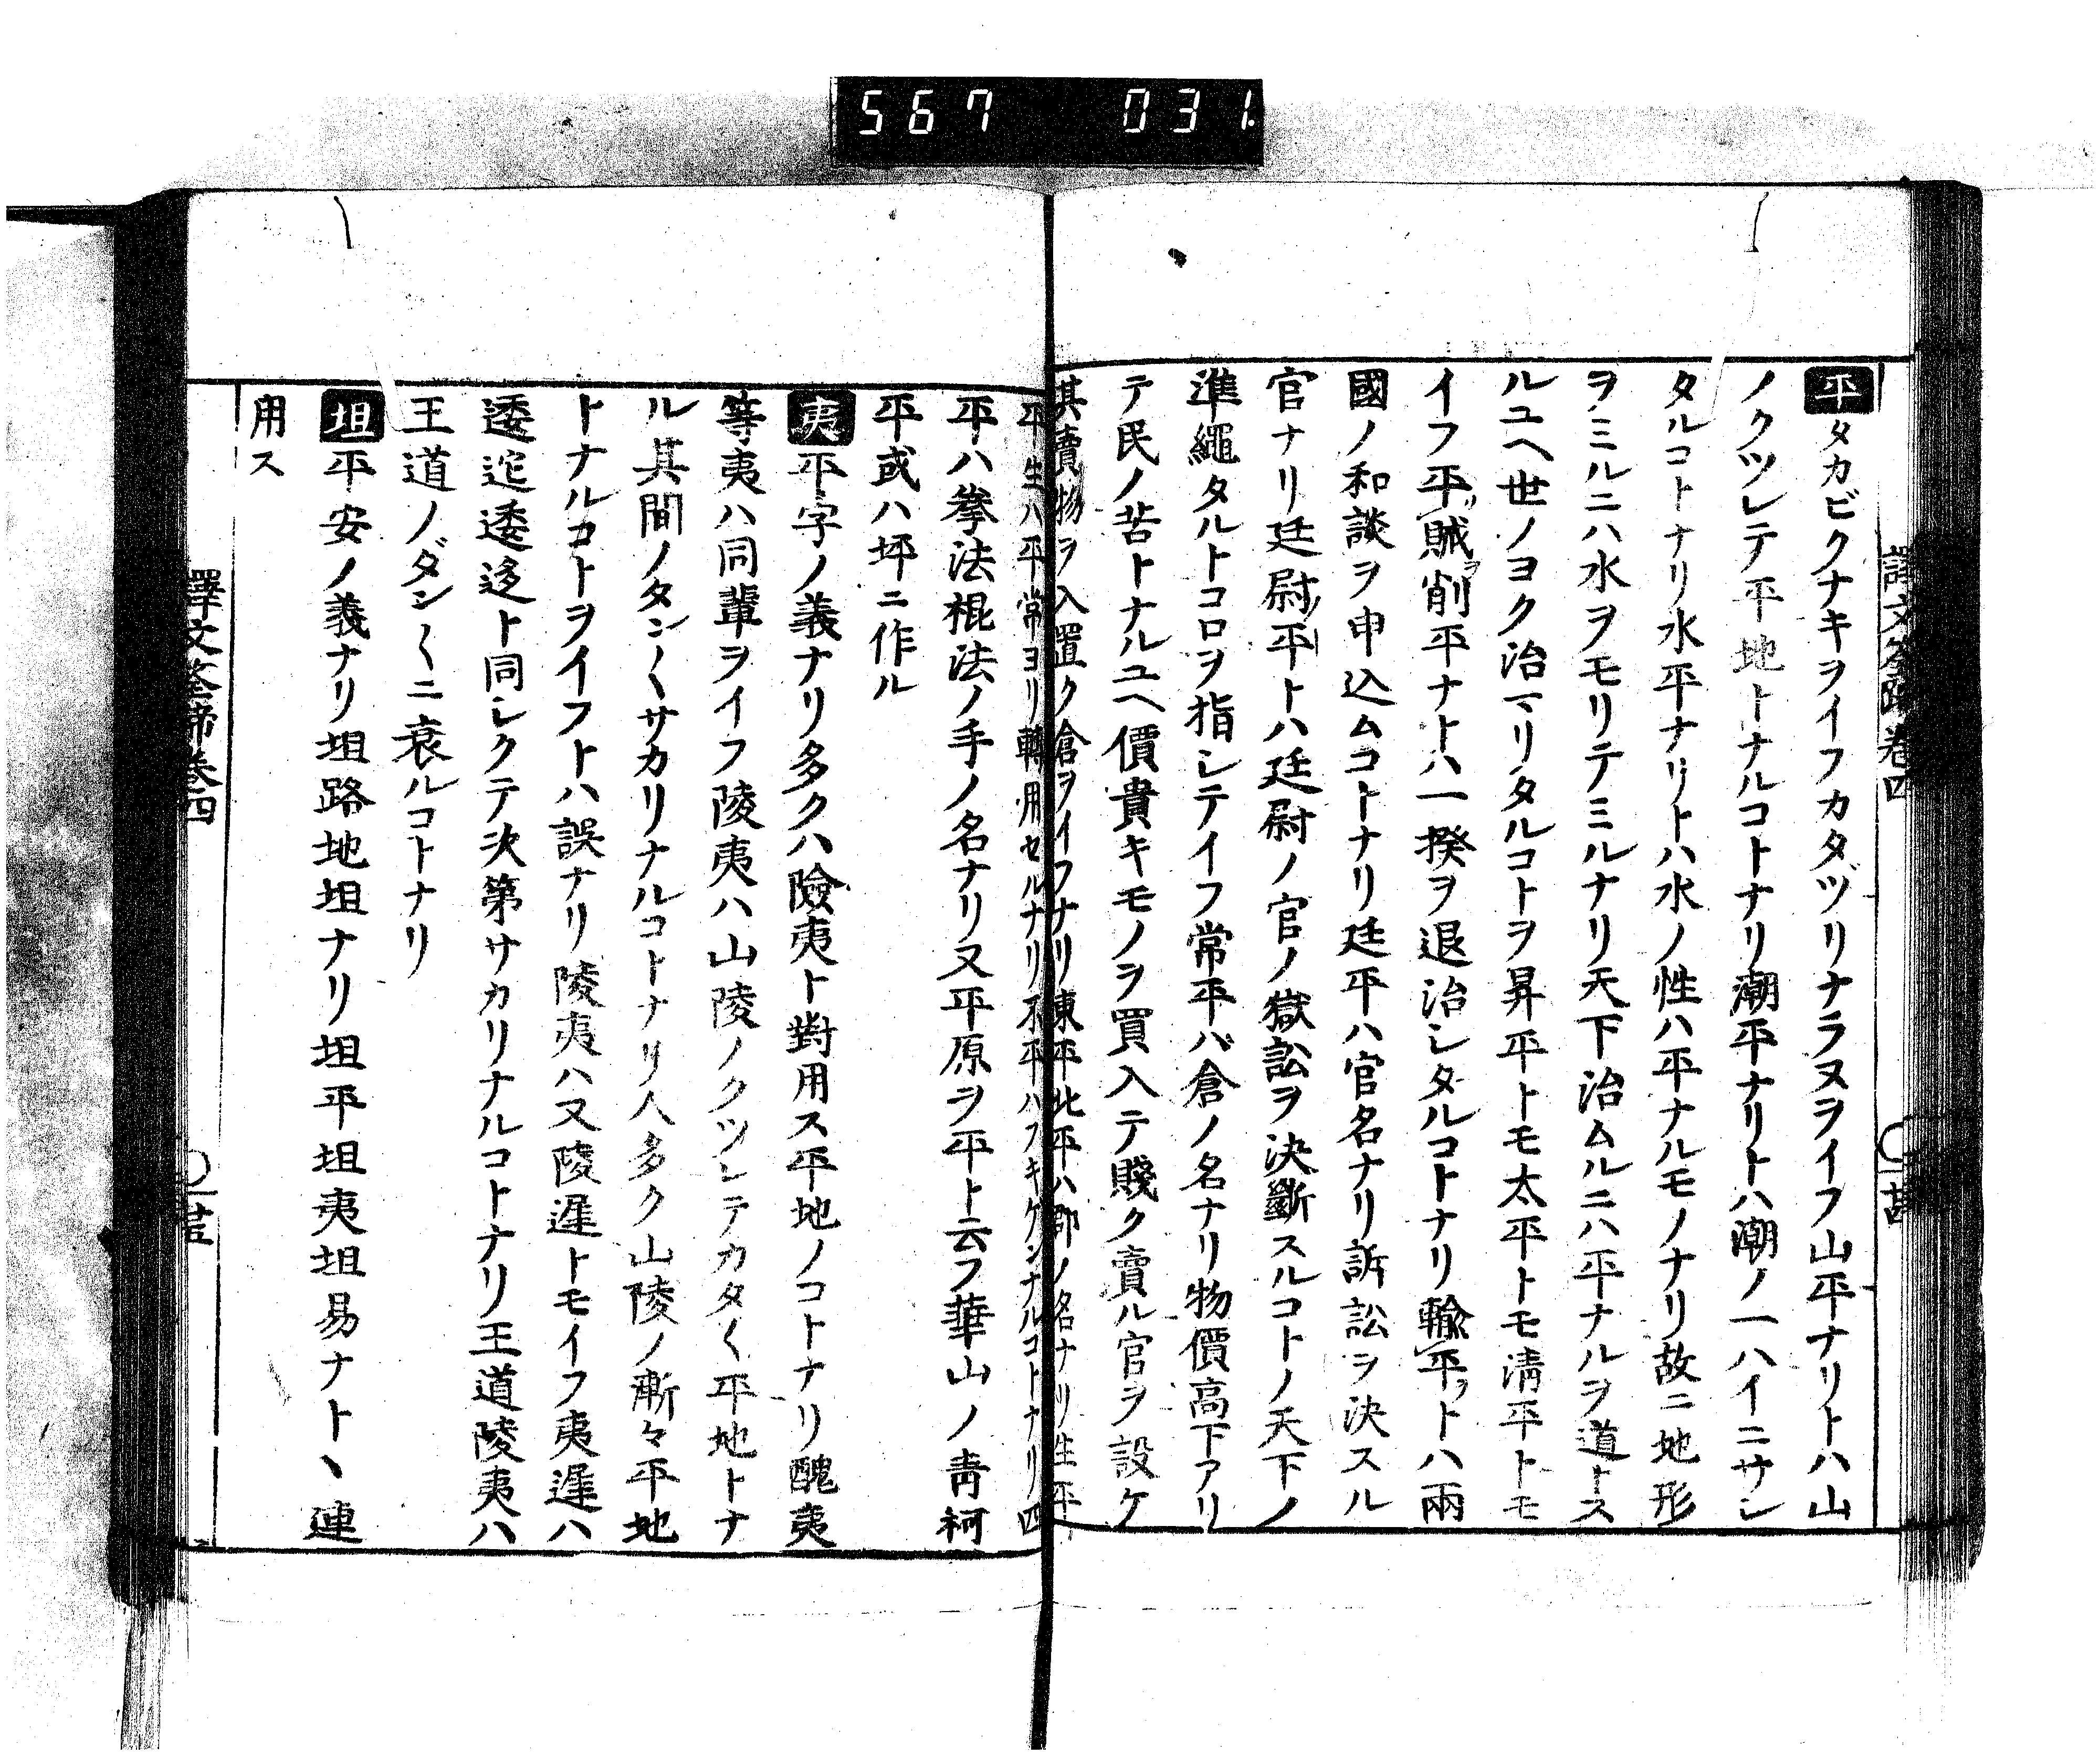 567 031.
譯文筌蹄卷四
平タカビクナキヲイフカタヅリナラヌヲイフ山平ナリトハ山
ノクツレテ平地トナルコトナリ潮平ナリトハ潮ノ一ハイニサシ
タルコトナリ水平ナリトハ水ノ性ハ平ナルモノナリ故ニ地形
ヲミルニハ水ヲモリテミルナリ天下治ムルニハ平ナルヲ道トス
ルユヘ世ノヨク治マリタルコトヲ昇平トモ太平トモ淸平トモ
イフ平賊削平ナトハ一揆ヲ退治シタルコトナリ輸平トハ兩
國ノ和談ヲ申込ムコトナリ廷平ハ官名ナリ訴訟ヲ決スル
官ナリ廷尉平トハ廷尉ノ官ノ獄訟ヲ決斷スルコトノ天下ノ
準繩タルトコロヲ指シテイフ常平ハ倉ノ名ナリ物價高下アリ
テ民ノ苦トナルユヘ價貴キモノヲ買入テ賤ク賣ル官ヲ設ケ
其賣物ヲ入置ク倉ヲイフナリ東平北平ハ郡ノ名ナリ生平
平生ハ平常ヨリ轉用セルナリ不平ハフキケンナルコトナリ四
平ハ拳法棍法ノ手ノ名ナリ又平原ヲ平ト云フ華山ノ靑柯
平或ハ坪ニ作ル
夷平字ノ義ナリ多クハ險夷ト對用ス平地ノコトナリ醜夷
等夷ハ同輩ヲイフ陵夷ハ山陵ノクツレテカタ〱平地トナ
ル其間ノタン〱サカリナルコトナリ人多ク山陵ノ漸々平地
トナルコトヲイフトハ誤ナリ陵夷ハ又陵遲トモイフ夷遲ハ
逶迱逶迻ト同シクテ次第サカリナルコトナリ王道陵夷ハ
王道ノダン〱ニ衰ルコトナリ
坦平安ノ義ナリ坦路地坦ナリ坦平坦夷坦易ナトヽ連
用ス
譯文筌蹄卷四